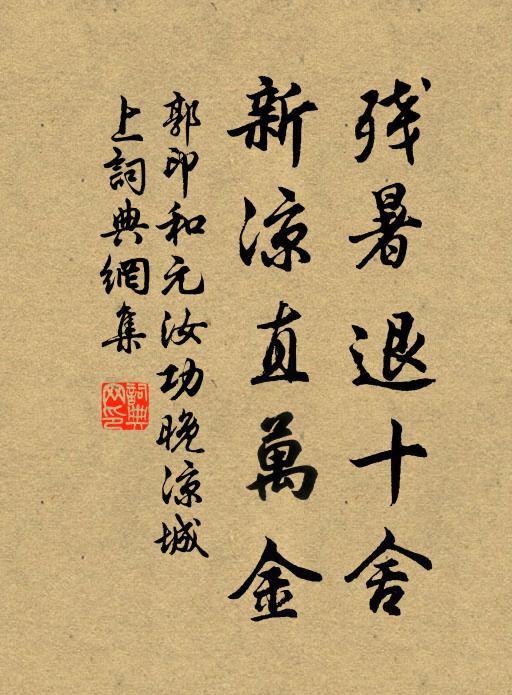 残暑退十舍
新凉直萬金
郭印和元汝功晚凉城
上詞典網集
詞典
网印